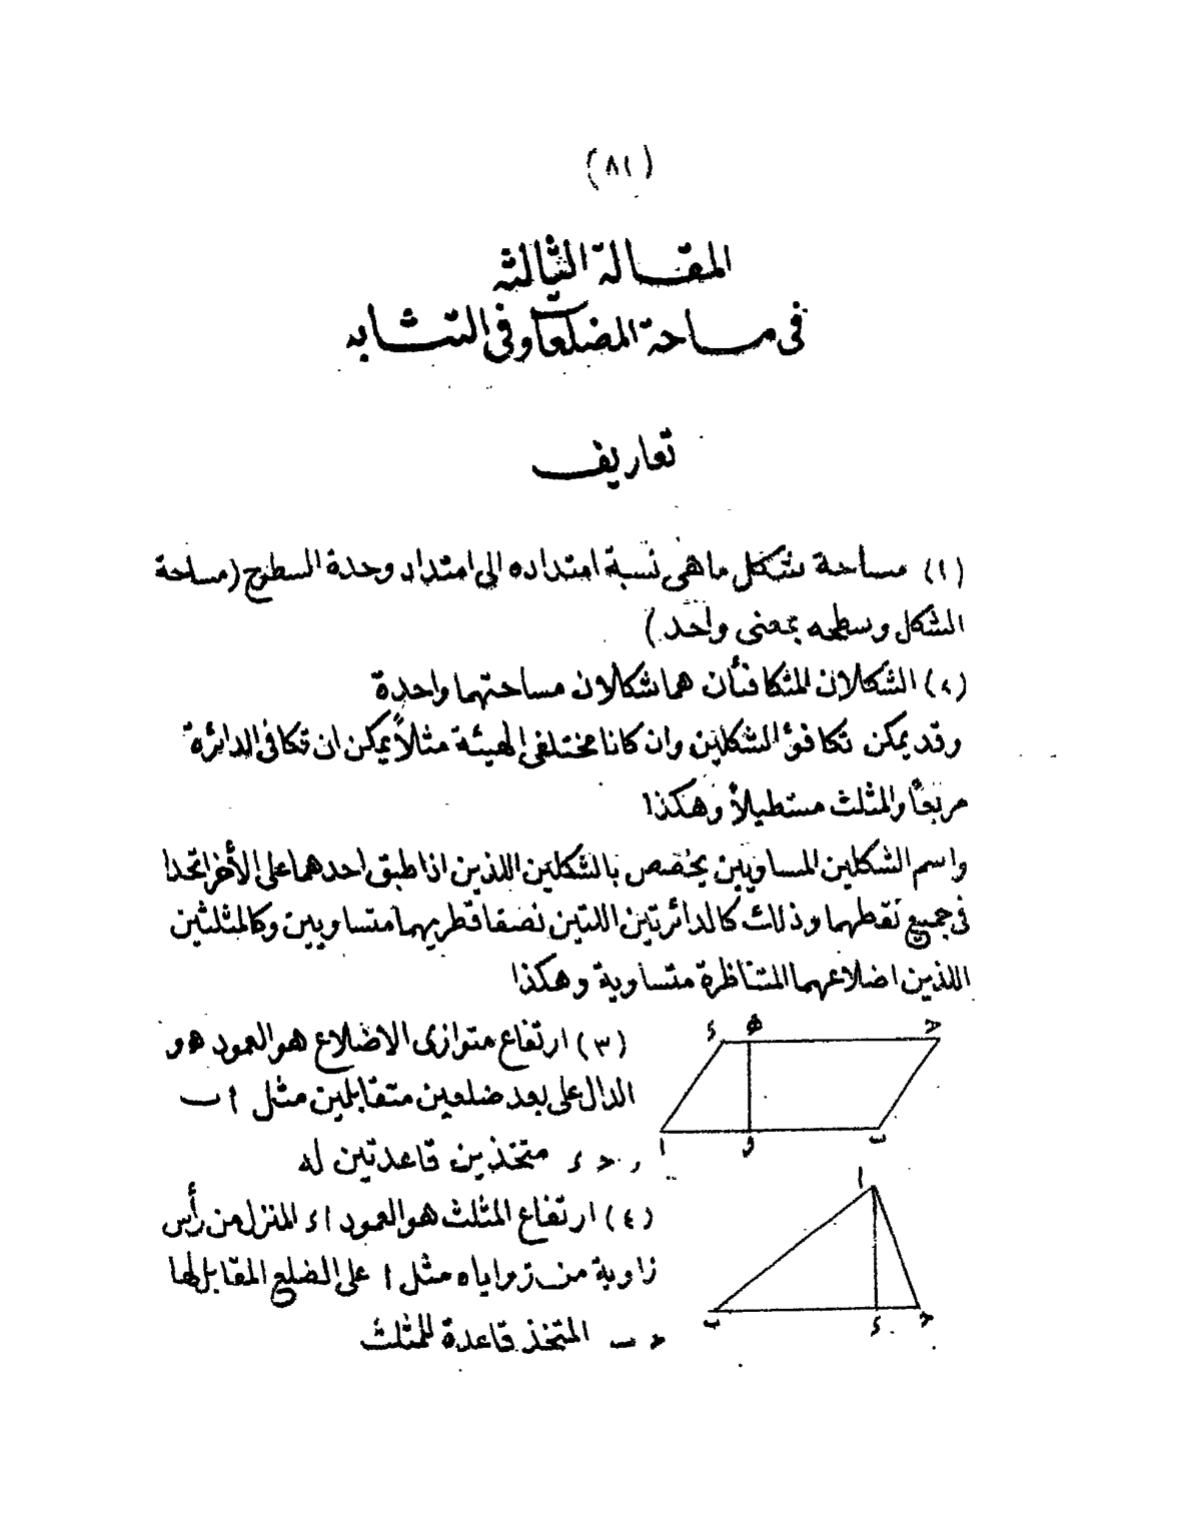 (٨١)
المقالة الثالثه
فى مساحة المضلعات وفى التشابه
تعاريف
(١) مساحة شكل ما هى نسبة امتداده الى امتداد وحدة السطوح (مساحة
الشكل وسطحه بمعنى واحد)
(٢) الشكلان المتكافئان هما شكلان مساحتهما واحدة
وقد يمكن تكافؤ الشكلين وان كانا مختلفى الهيئة مثلاً يمكن ان تكافى الدائرة
مربعاً والمثلث مستطيلاً وهكذا
واسم الشكلين المساويين يخصص بالشكلين اللذين اذا طبق احدهما على الأخر اتحدا
فى جميع نقطهما وذلك كالدائرتين اللتين نصفا قطريهما متساويين وكالمثلثين
اللذين اضلاعهما المتناظرة متساوية وهكذا
(٣) ارتفاع متوازى الاضلاع هو العمود ھ و
الدال على بعد ضلعين متقابلين مثل ا ب
, ح ء متخذين قاعدتين له
(٤) ارتفاع المثلث هو العمود ا ء المنزل من رأس
زاوية من زواياه مثل ا على الضلع المقابل لها
ح ب المتخذ قاعدة للمثلث
ء ھ ح
ا و ب
ا
ب ء ح